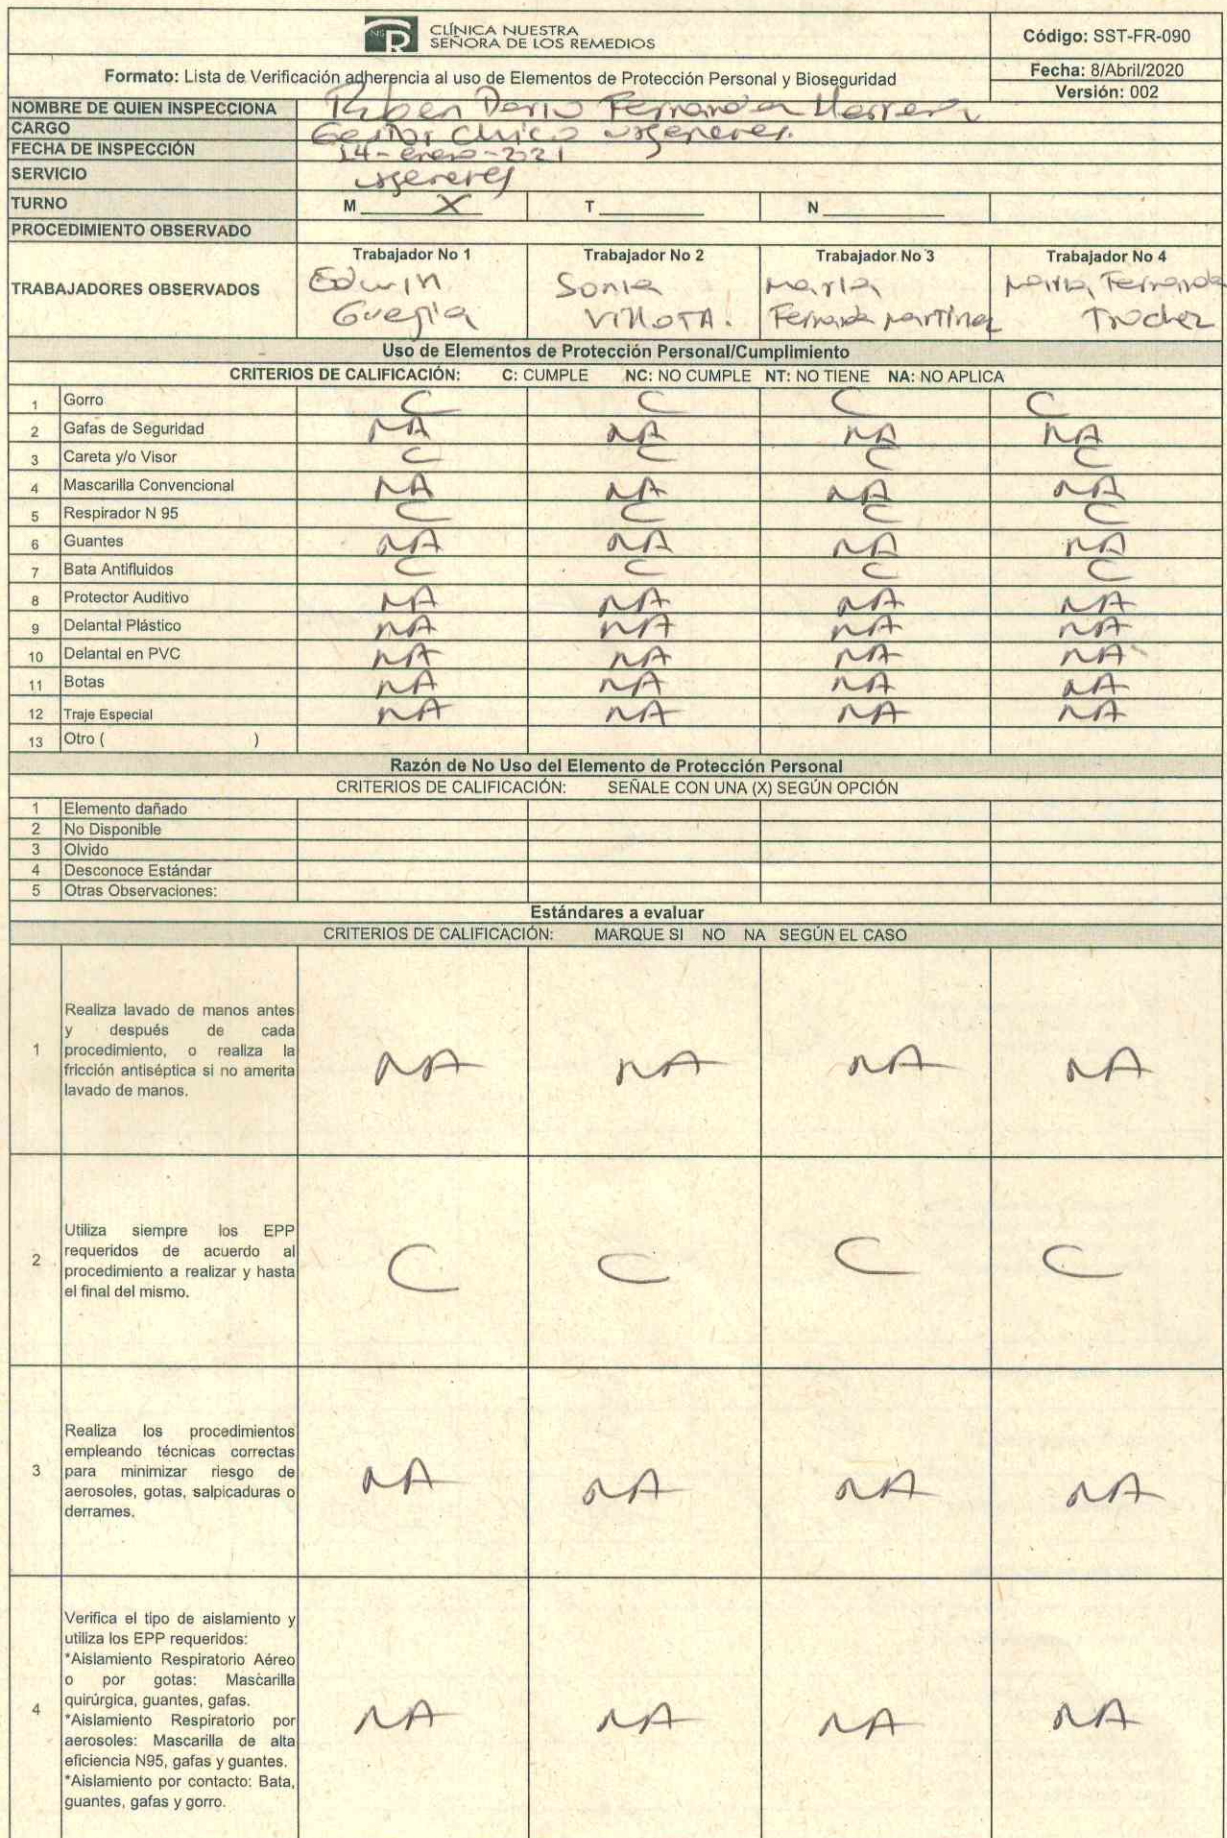 NSR CLÍNICA NUESTRA
SEÑORA DE LOS REMEDIOS
Código: SST-FR-090
Formato: Lista de Verificación adherencia al uso de Elementos de Protección Personal y Bioseguridad
Fecha: 8/Abril/2020
Versión: 002
NOMBRE DE QUIEN INSPECCIONA Ruben Dario Fernandez Herrera
CARGO Gestor Clinico
FECHA DE INSPECCIÓN 14-enero-2021
SERVICIO
TURNO M X T N
PROCEDIMIENTO OBSERVADO
Trabajador No 1 Trabajador No 2 Trabajador No 3 Trabajador No 4
TRABAJADORES OBSERVADOS
Edwin Sonia Maria Maria Fernanda
Guegia Villota. Fernanda Martinez Trochez
Uso de Elementos de Protección Personal/Cumplimiento
CRITERIOS DE CALIFICACIÓN: C: CUMPLE NC: NO CUMPLE NT: NO TIENE NA: NO APLICA
1 Gorro C C C C
2 Gafas de Seguridad NA NA NA NA
3 Careta y/o Visor C C C C
4 Mascarilla Convencional NA NA NA NA
5 Respirador N 95 C C C C
6 Guantes NA NA NA NA
7 Bata Antifluidos C C C C
8 Protector Auditivo NA NA NA NA
9 Delantal Plástico NA NA NA NA
10 Delantal en PVC NA NA NA NA
11 Botas NA NA NA NA
12 Traje Especial NA NA NA NA
13 Otro ( )
Razón de No Uso del Elemento de Protección Personal
CRITERIOS DE CALIFICACIÓN: SEÑALE CON UNA (X) SEGÚN OPCIÓN
1 Elemento dañado
2 No Disponible
3 Olvido
4 Desconoce Estándar
5 Otras Observaciones:
Estándares a evaluar
CRITERIOS DE CALIFICACIÓN: MARQUE SI NO NA SEGÚN EL CASO
Realiza lavado de manos antes
y después de cada
1 procedimiento, o realiza la
fricción antiséptica si no amerita
lavado de manos.
NA NA NA NA
Utiliza siempre los EPP
requeridos de acuerdo al
2 procedimiento a realizar y hasta
el final del mismo.
C C C C
Realiza los procedimientos
empleando técnicas correctas
3 para minimizar riesgo de
aerosoles, gotas, salpicaduras o
derrames.
NA NA NA NA
Verifica el tipo de aislamiento y
utiliza los EPP requeridos:
*Aislamiento Respiratorio Aéreo
o por gotas: Mascarilla
quirúrgica, guantes, gafas.
4 *Aislamiento Respiratorio por
aerosoles: Mascarilla de alta
eficiencia N95, gafas y guantes.
*Aislamiento por contacto: Bata,
guantes, gafas y gorro.
NA NA NA NA